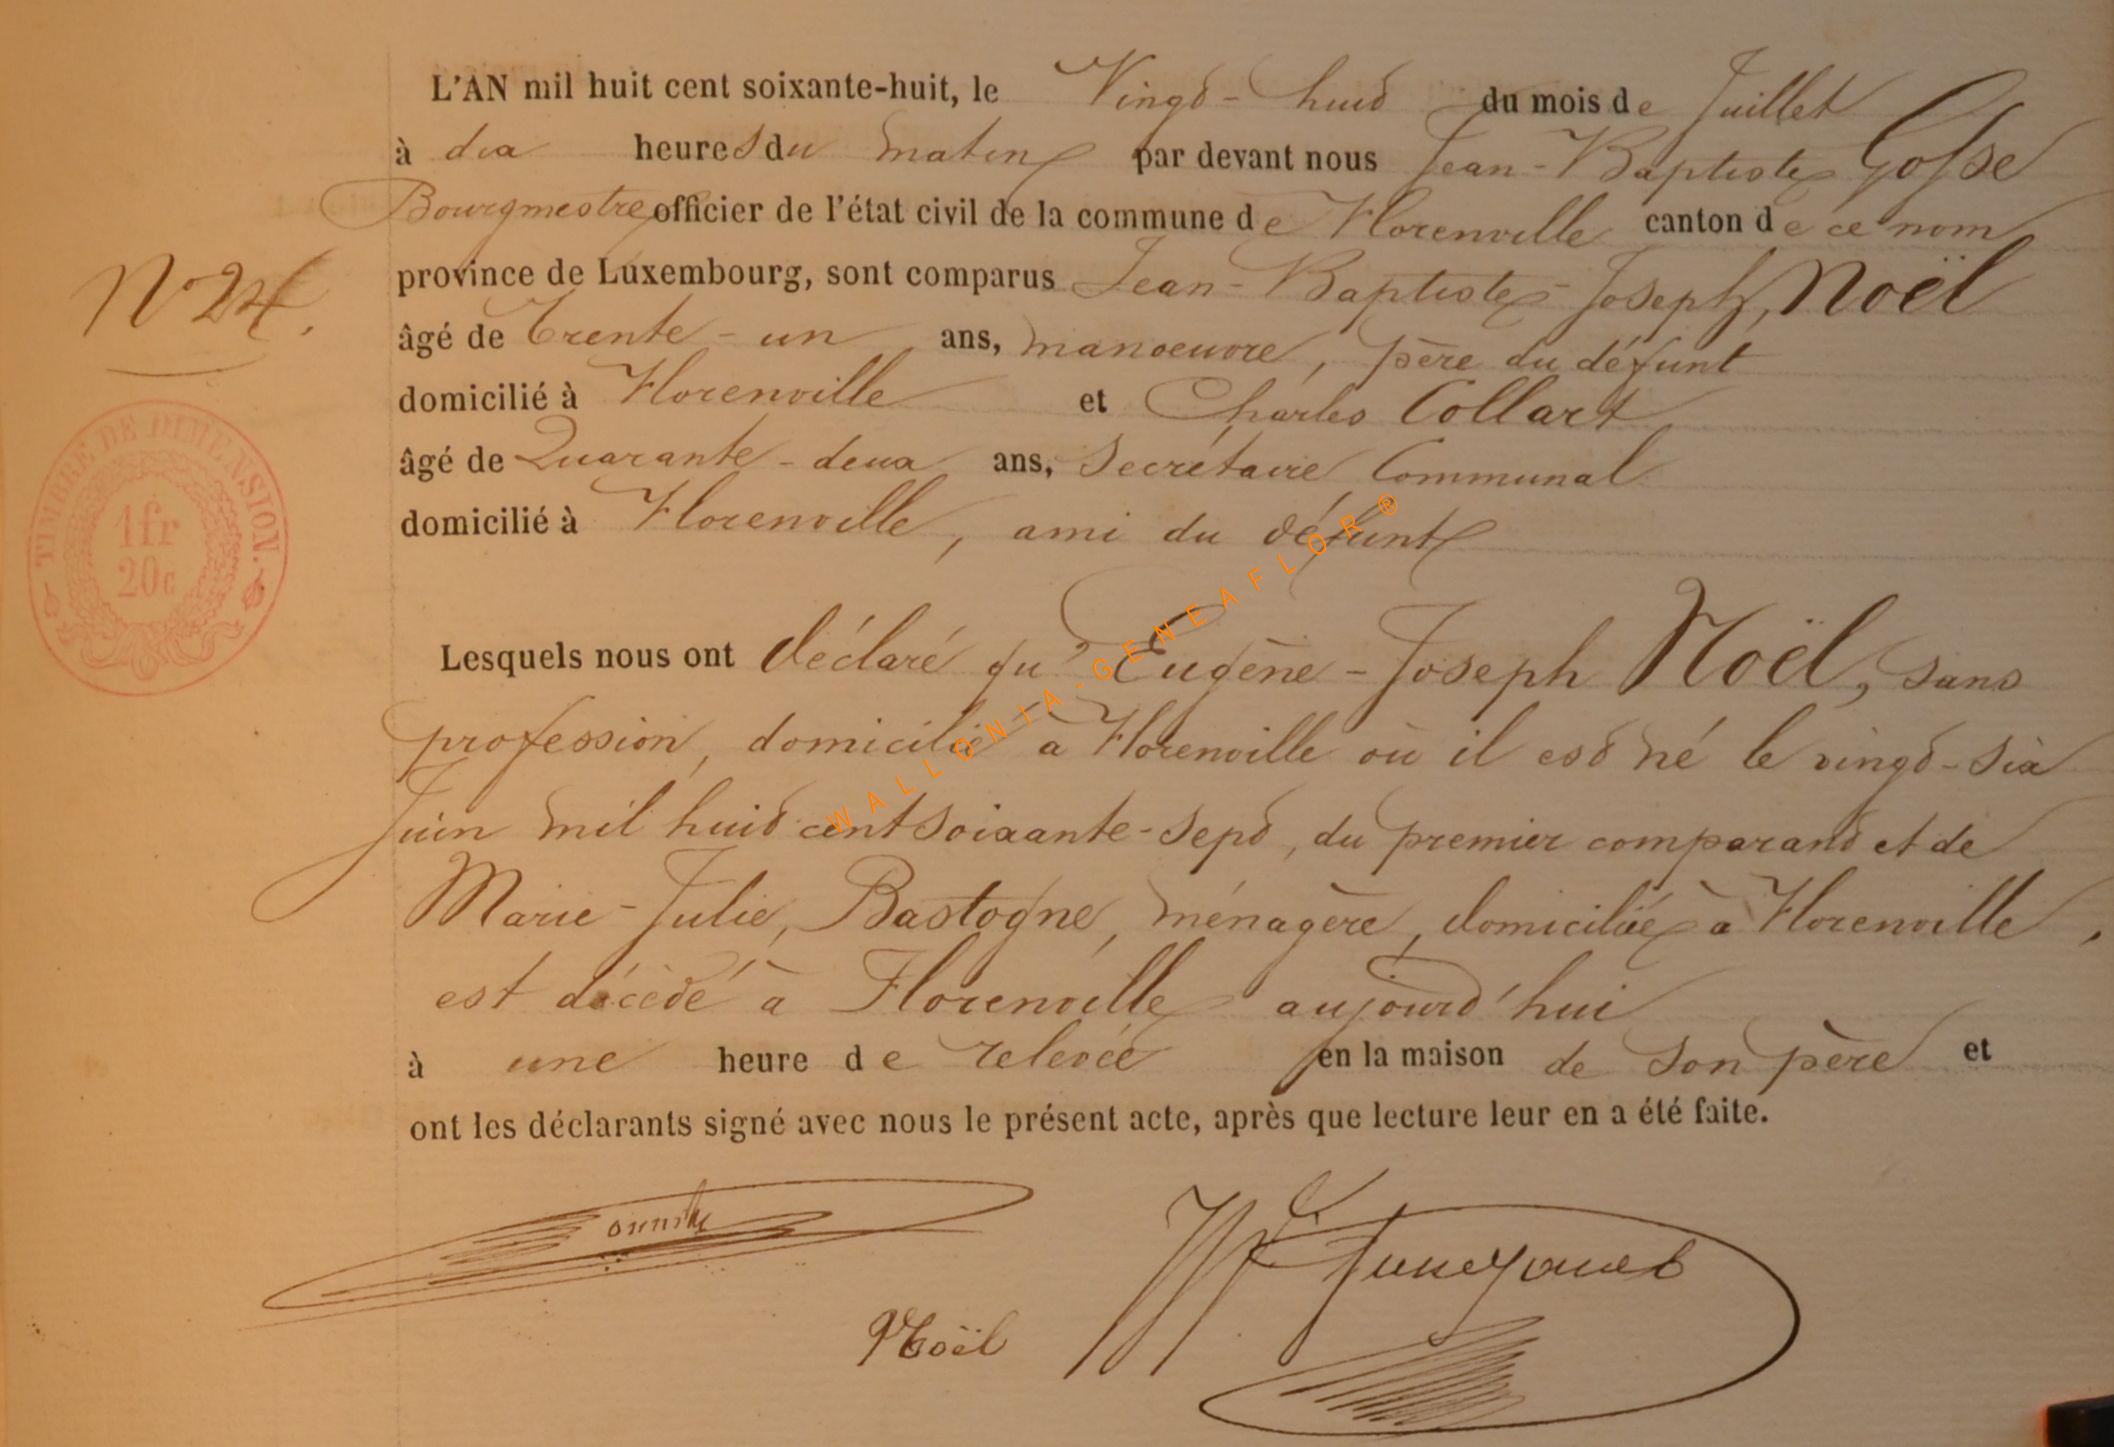 L'AN mil huit cent soixante-huit, le Vingt-huit du mois de Juillet
à dix heures du matin par devant nous Jean-Baptiste Gosse
Bourgmestre officier de l'état civil de la commune de Florenville canton de ce nom
province de Luxembourg, sont comparus Jean-Baptiste-Joseph, Noël
N° 24.
âgé de Trente-un ans, manoeuvre, père du défunt
domicilié à Florenville et Charles Collart
âgé de Quarante-deux ans, Secrétaire Communal
domicilié à Florenville, ami du défunt
TIMBRE DE DIMENSION.
1fr
20c
Lesquels nous ont déclaré qu'Eugène-Joseph Noël, sans
profession, domicilié à Florenville où il est né le vingt-six
Juin mil huit cent soixante-sept, du premier comparant et de
Marie-Julie, Bastogne, ménagère, domiciliée à Florenville,
est décédé à Florenville aujourd'hui
à une heure de relevée en la maison de son père et
ont les déclarants signé avec nous le présent acte, après que lecture leur en a été faite.
Noël
WALLONIA-GENEAFLOR®